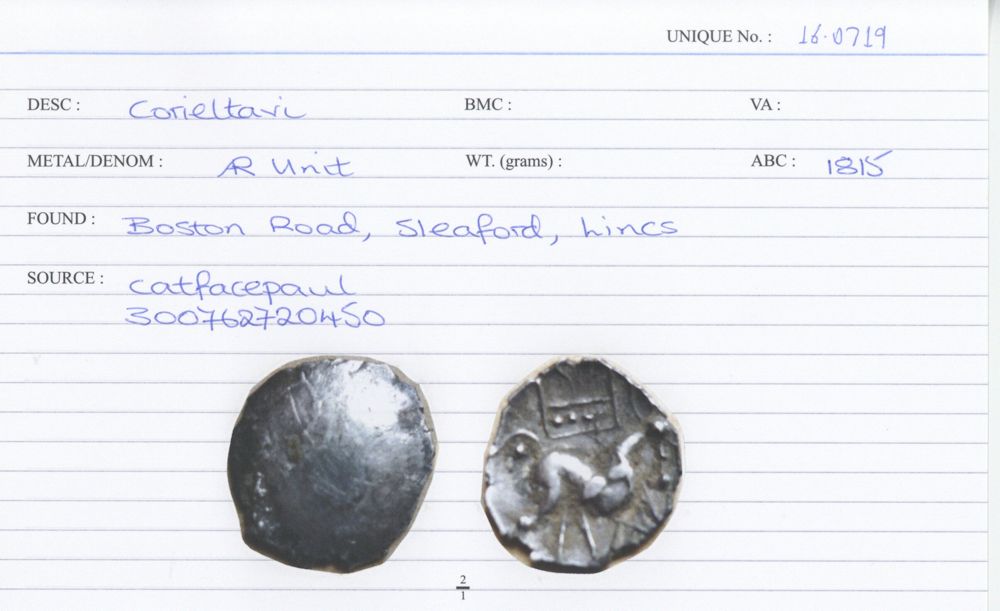 UNIQUE No. : 16.0719
DESC : Corieltavi BMC : VA :
METAL/DENOM : AR Unit WT. (grams) : ABC : 1815
FOUND : Boston Road, Sleaford, Lincs
SOURCE : catfacepaul
300762720450
2
1